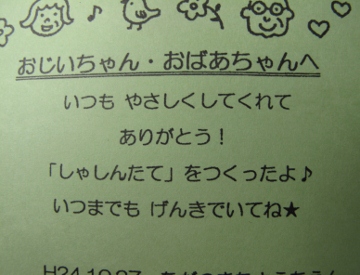 おじいちゃん・おばあちゃんへ
いつも やさしくしてくれて
ありがとう!
「しゃしんたて」をつくったよ♪
いつまでも げんきでいてね★